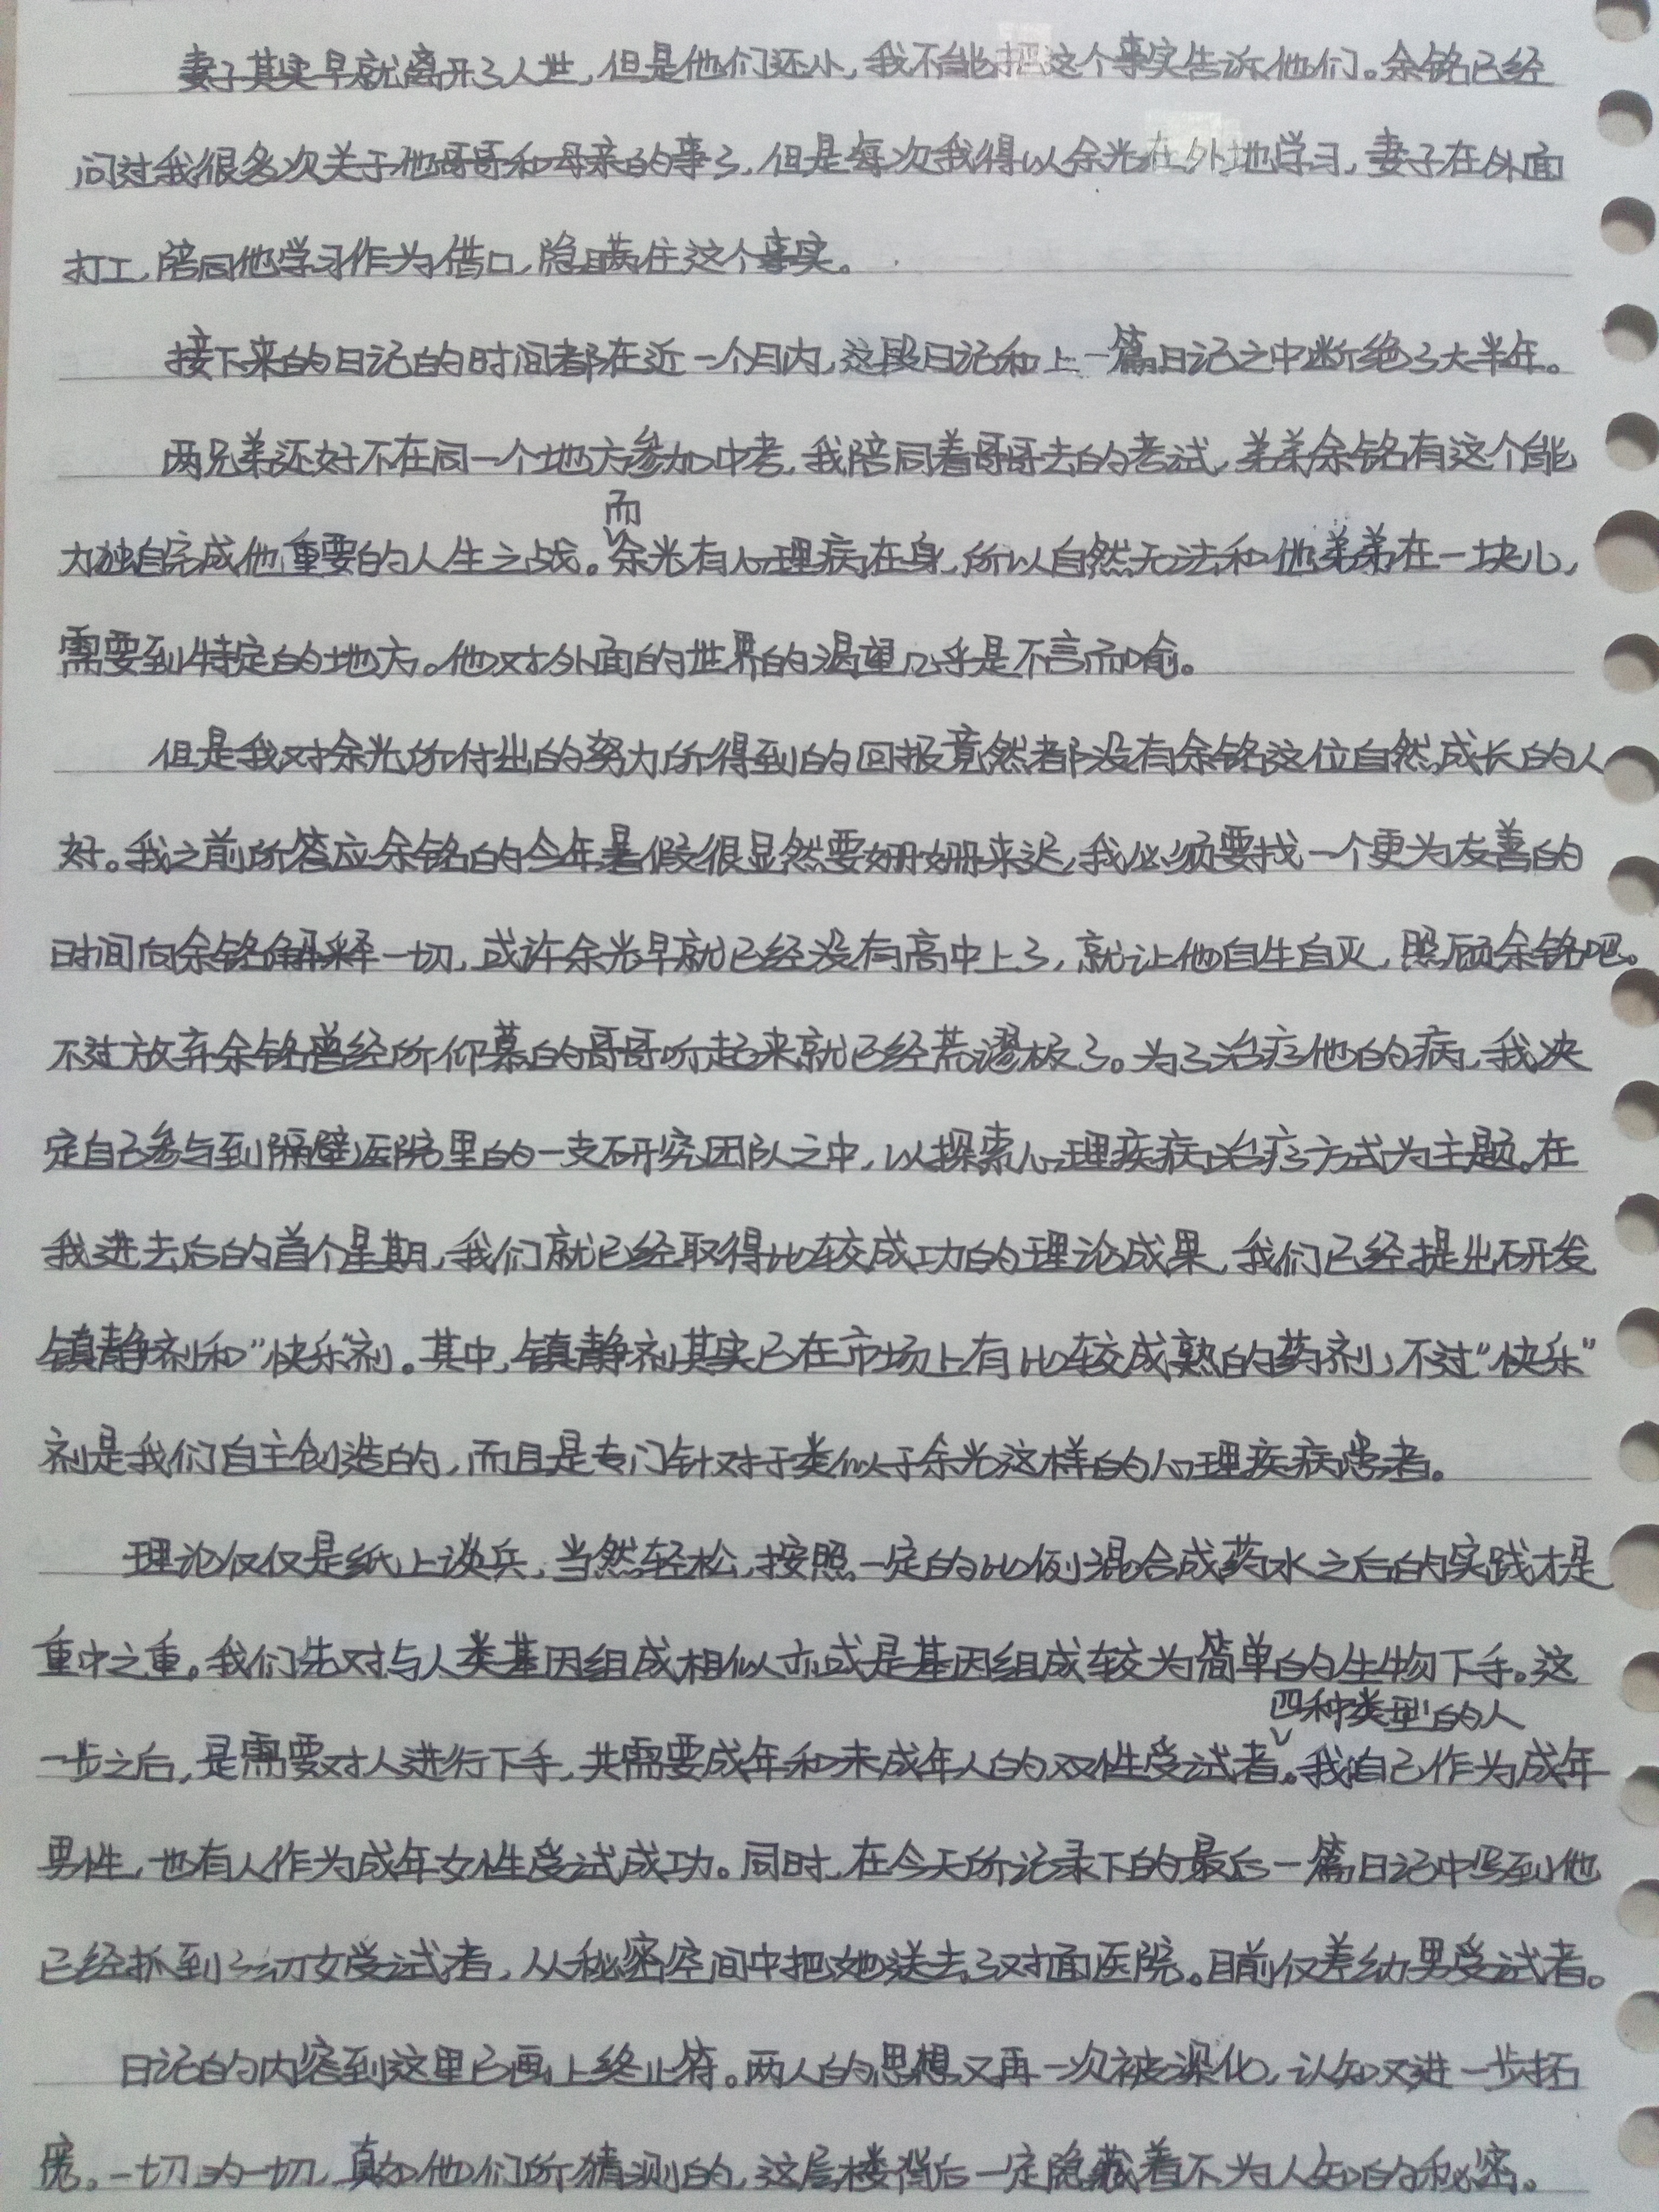 妻子其实早就离开了人世，但是他们还小，我不能把这个事实告诉他们。余铭已经
问过我很多次关于他哥哥和母亲的事了，但是每次我得以余光在外地学习，妻子在外面
打工，陪同他学习作为借口，隐瞒住这个事实。
接下来的日记的时间都在近一个月内，这段日记和上一篇日记之中断绝了大半年。
两兄弟还好不在同一个地方参加中考，我陪同着哥哥去的考试，弟弟余铭有这个能
而
力独自完成他重要的人生之战。余光有心理病在身，所以自然无法和他弟弟在一块儿，
需要到特定的地方。他对外面的世界的渴望几乎是不言而喻。
但是我对余光所付出的努力所得到的回报竟然都没有余铭这位自然成长的人
好。我之前所答应余铭的今年暑假很显然要姗姗来迟，我必须要找一个更为友善的
时间向余铭解释一切，或许余光早就已经没有高中上了，就让他自生自灭，照顾余铭吧。
不过放弃余铭曾经所仰慕的哥哥听起来就已经荒谬极了。为了治疗他的病，我决
定自己参与到隔壁医院里的一支研究团队之中，以探索心理疾病治疗方式为主题。在
我进去后的首个星期，我们就已经取得比较成功的理论成果，我们已经提出研发
镇静剂和“快乐”剂。其中，镇静剂其实已在市场上有比较成熟的药剂，不过“快乐”
剂是我们自主创造的，而且是专门针对于类似于余光这样的心理疾病患者。
理论仅仅是纸上谈兵，当然轻松，按照一定的比例混合成药水之后的实践才是
重中之重。我们先对与人类基因组成相似亦或是基因组成较为简单的生物下手。这
四种类型的人
一步之后，是需要对人进行下手，共需要成年和未成年人的双性受试者。我自己作为成年
男性，也有人作为成年女性受试成功。同时，在今天所记录下的最后一篇日记中写到他
已经抓到了幼女受试者，从秘密空间中把她送去了对面医院。目前仅差幼男受试者。
日记的内容到这里已画上终止符。两人的思想又再一次被深化，认知又进一步拓
宽。一切为一切，真如他们所猜测的，这层楼背后一定隐藏着不为人知的秘密。